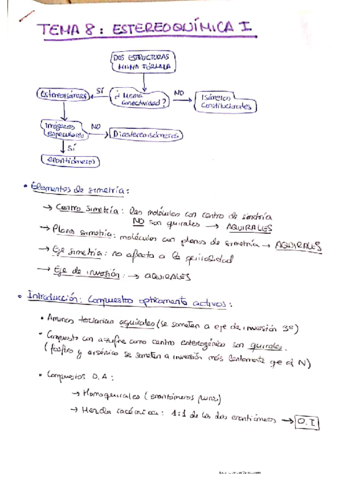 TEMA 8: ESTEREOQUÍMICA I
DOS ESTRUCTURAS
MISMA FÓRMULA
Estereoisómeros
SÍ
¿Misma
conectividad?
NO
Isómeros
Constitucionales
Imágenes
especulares
NO
Diastereoisómeros
SÍ
enantiómeros
• Elementos de simetría:
→ Centro simetría: las moléculas con centro de simetría
NO son quirales → AQUIRALES
→ Plano simetría: moléculas con planos de simetría → AQUIRALES
→ Eje simetría: no afecta a la quiralidad
→ Eje de inversión: → AQUIRALES
• Introducción: Compuestos ópticamente activos:
• Aminas terciarias aquirales (se someten a eje de inversión 3º)
• Compuesto con azufre como centro estereogénico son quirales.
(fosfiro y arsénico se someten a inversión más lentamente que el N)
• Compuestos O.A:
→ Homoquirales (enantiómeros puros)
→ Mezcla racémica: 1:1 de los dos enantiómeros → O.I